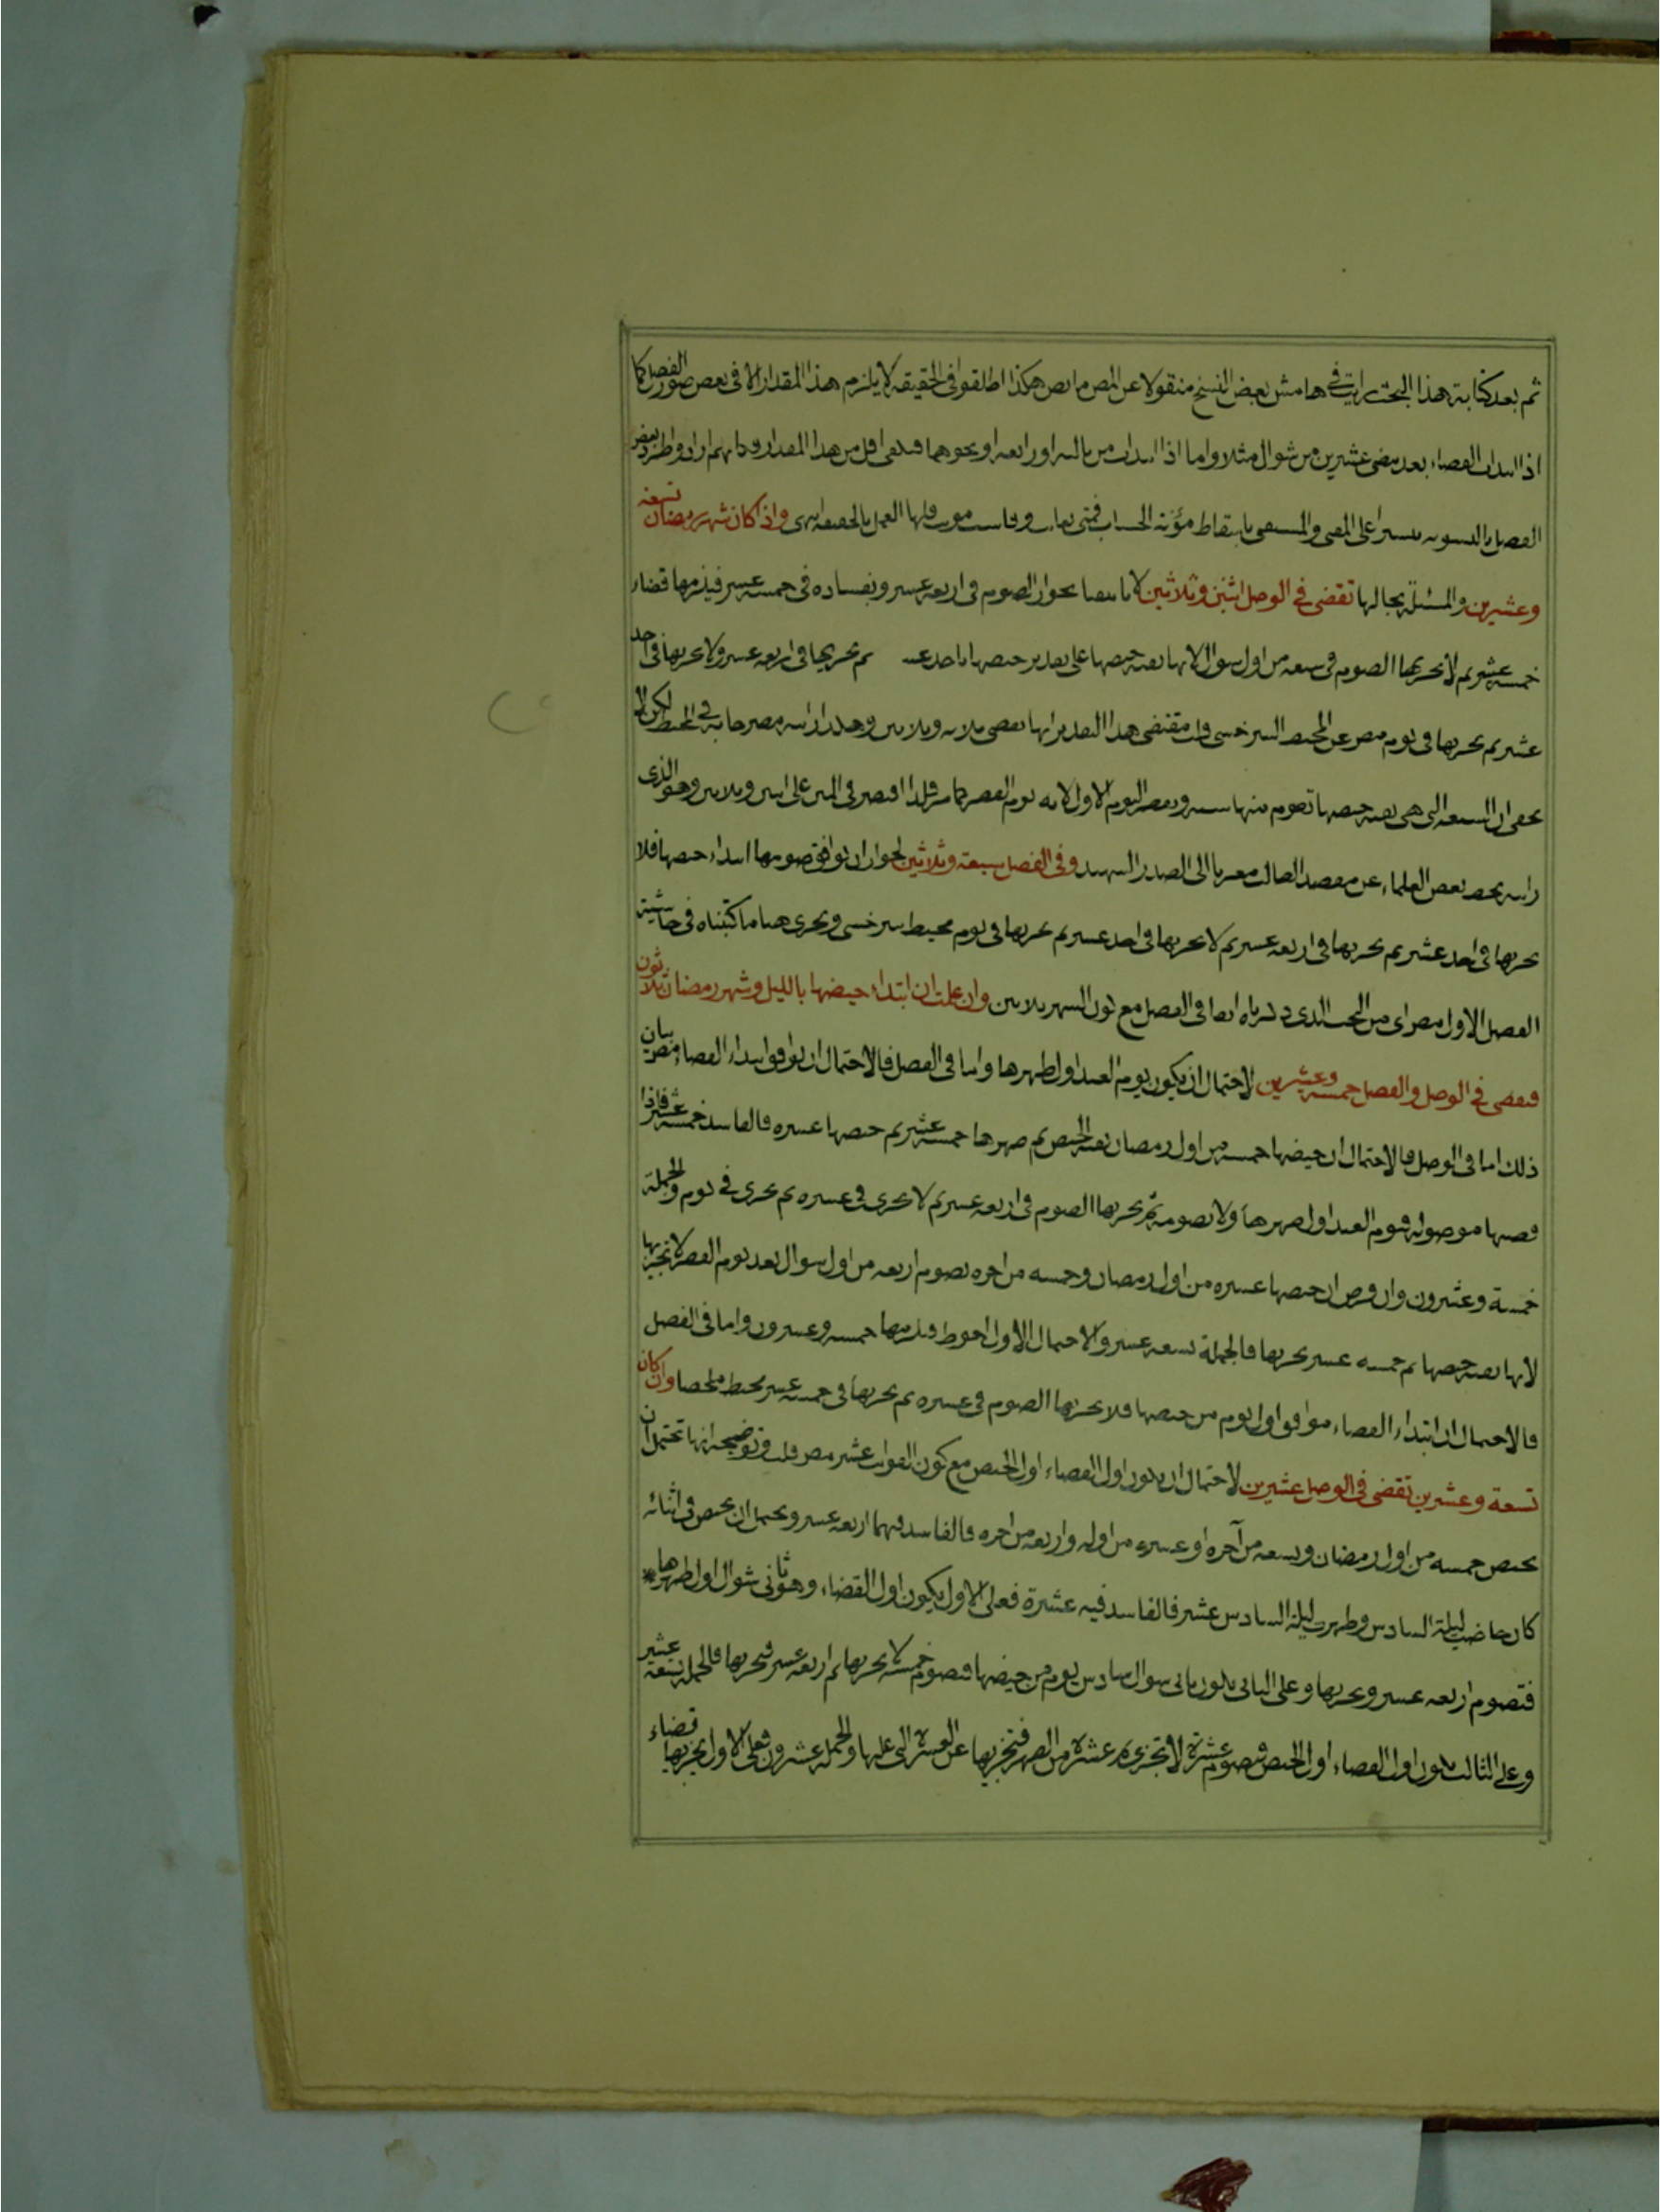 ثم بعد كتابة هذا البحث رايت في هامش بعض النسخ منقولا عن المص ما نصه هكذا اطلقوا في الحقيقة لا يلزم هذا المقدار الا في بعض صور الفصل كما
اذا ابتدات القضاء بعد مضي عشرين من شوال مثلا واما اذا ابتدات من ثالثه او رابعه او نحوهما فيكفي اقل من هذا المقدار وكانهم ارادوا طرد بعض
الفصل بالتسوية تيسيرا على المفتي والمستفتي باسقاط مؤنة الحساب فمتى تعانت وقاست مؤنته فلها العمل بالحقيقة انتهى واذ كان شهر رمضان تسعة
وعشرين والمسئلة بحالها تقضي في الوصل اثنين وثلاثين لانا تيقنا بجواز الصوم في اربعة عشر وبفساده في خمسة عشر فيلزمها قضاء
خمسة عشر ثم لا يجزيها الصوم في سبعة من اول شوال لانها بقية حيضها على تقدير حيضها باحد عشر ثم يجزيها في اربعة عشر ولا يجزيها في احد
عشر ثم يجزيها في يوم مصر عن المحيط السرخسي قلت مقتضى هذا التقدير انها تقضي ثلاثة وثلاثين وهكذا رايته مصرحا به في المحيط لكن لا
يخفى ان السبعة التي هي بقية حيضها تصوم منها ستة وتفطر اليوم الاول لانه يوم الفطر كما مر فلذا اقتصر في المتن على اثنين وثلاثين وهو الذي
رايته بخط بعض العلماء عن مقصد الطالب معزيا الى الصدر الشهيد وفي الفصل سبعة وثلاثين لجواز ان يوافق صومها ابتداء حيضها فلا
يجزيها في احد عشر ثم يجزيها في اربعة عشر ثم لا يجزيها في احد عشر ثم يجزيها في يوم محيط سرخسي ويجري هنا ما كتبناه في حاشية
الفصل الاول مصر اي من البحث الذي ذكرناه انفا في الفصل مع كون الشهر ثلاثين وان علمت ان ابتداء حيضها بالليل وشهر رمضان ثلاثون
فتقضي في الوصل والفصل خمسة وعشرين لاحتمال ان يكون يوم العيد اول طهرها واما في الفصل فالاحتمال ان يوافق ابتداء القضاء مصر بيان
ذلك اما في الوصل فالاحتمال ان حيضها خمسة من اول رمضان بقية الحيض ثم طهرها خمسة عشر ثم حيضها عشرة فالفاسد خمسة عشر فاذا
قضتها موصولة فيوم العيد اول طهرها ولا تصومه ثم يجزيها الصوم في اربعة عشر ثم لا يجزى في عشرة ثم يجزى في يوم والجملة
خمسة وعشرون وان فرض ان حيضها عشرة من اول رمضان وخمسة من اخره تصوم اربعة من اول شوال بعد يوم الفطر لا تجزيها
لانها بقية حيضها ثم خمسة عشر يجزيها فالجملة تسعة عشر والاحتمال الاول احوط فيلزمها خمسة وعشرون واما في الفصل
فالاحتمال ان ابتداء القضاء موافق اول يوم من حيضها فلا يجزيها الصوم في عشرة ثم يجزيها في خمسة عشر محيط ملخصا وان كان
تسعة وعشرين تقضي في الوصل عشرين لاحتمال ان يكون اول القضاء اول الحيض مع كون الفوائت عشر مصر قلت وتوضيحه انها تحتمل ان
تحيض خمسة من اول رمضان وتسعة من آخره او عشرة من اوله واربعة من اخره فالفاسد فيهما اربعة عشر ويحتمل ان تحيض في اثنائه
كان حاضت ليلة السادس وطهرت ليلة السادس عشر فالفاسد فيه عشرة فعلى الاول يكون اول القضاء وهو ثاني شوال اول طهرها
فتصوم اربعة عشر ويجزيها وعلى الثاني يكون ثاني شوال سادس يوم من حيضها فتصوم خمسة لا يجزيها ثم اربعة عشر فيجزيها فالجملة تسعة عشر
وعلى الثالث يكون اول القضاء اول الحيض فتصوم عشرة لا تجزى ثم عشرة من الطهر فتجزيها عن العشرة التي عليها والجملة عشرون فعلى الاول يجزيها قضاء